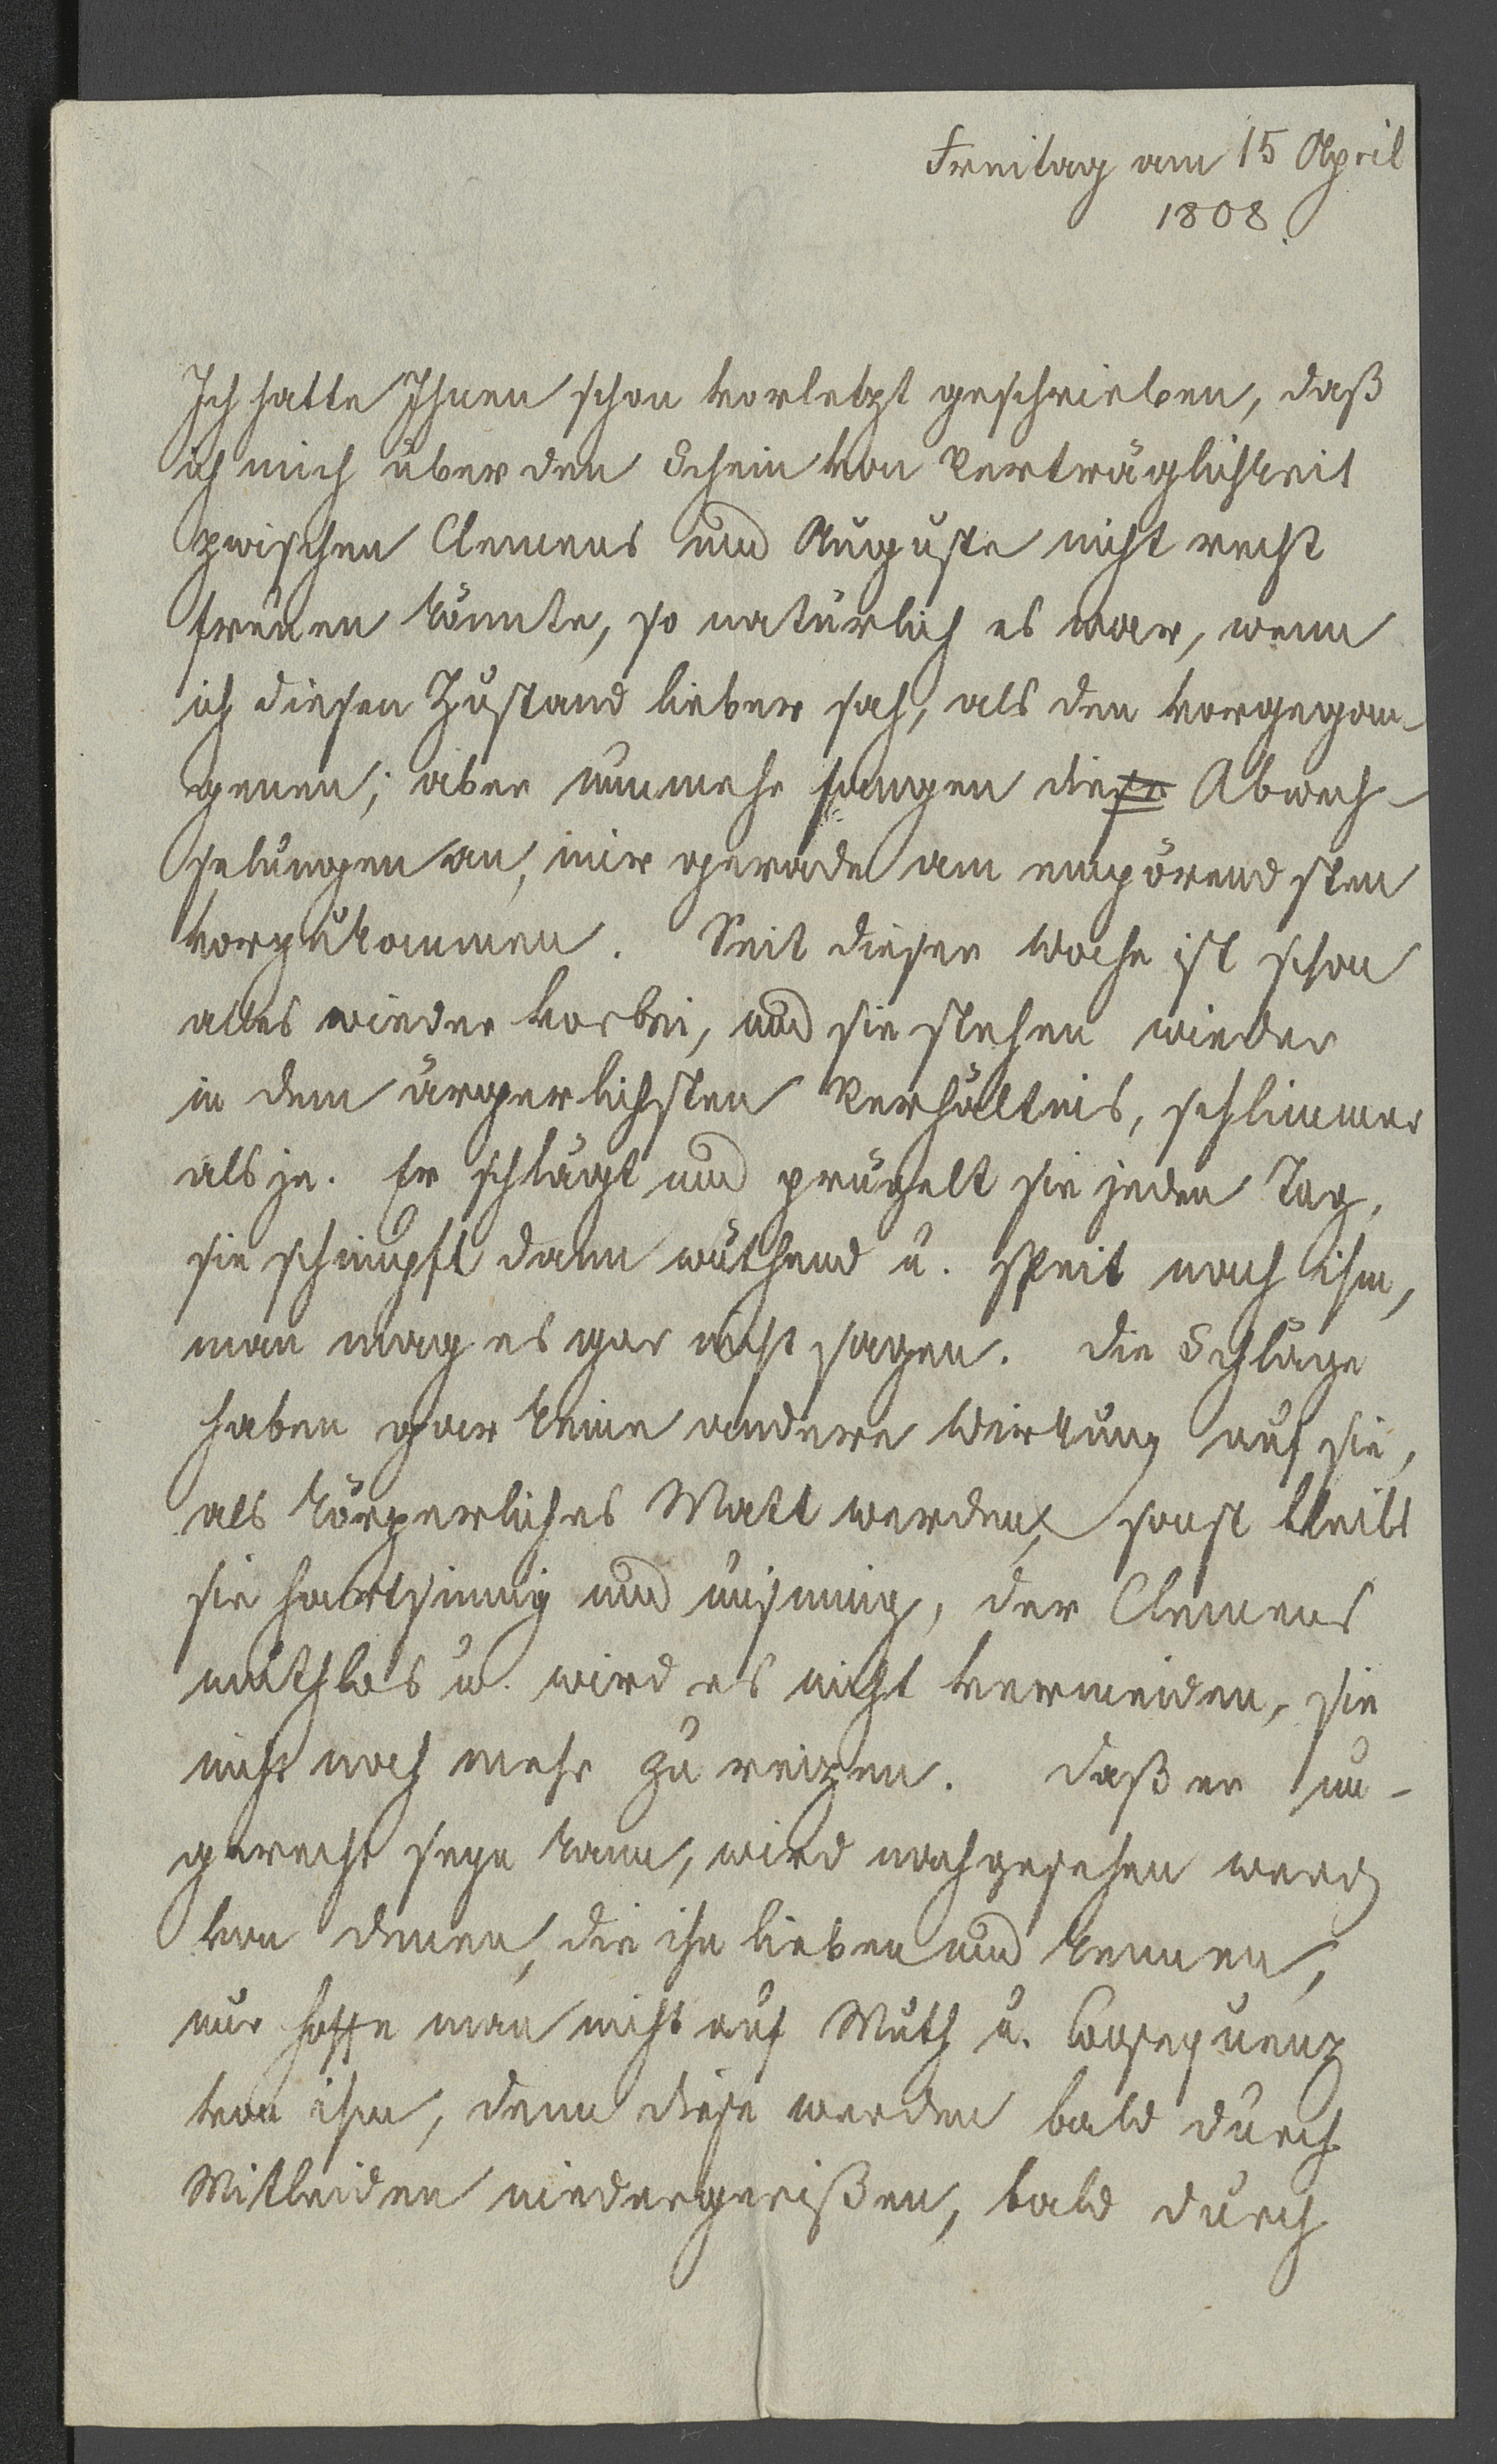 Freitag am 15 April
1808.
Ich hatte Ihnen schon vorletzt geschrieben, daß
ich mich über den Schein von Verträglichkeit
zwischen Clemens und Auguste nicht recht
freuen könnte, so natürlich es war, wenn
ich diesen Zustand lieber sah, als den vorgegan-
genen; aber nunmehr fangen diese Abwech-
selungen an, mir gerade am empörendsten
vorzukommen. Seit dieser Woche ist schon
alles wieder vorbei, und sie stehen wieder
in dem ärgerlichsten Verhältnis, schlimmer
als je. Er schlägt und prügelt sie jeden Tag,
sie schimpft dann wüthend u. speit nach ihm,
man mag es gar nicht sagen. Die Schläge
haben gar keine andere Wirkung auf sie,
als körperliches Matt werden, sonst bleibt
sie hartsinnig und unsinnig, der Clemens
muthlos u. wird es nicht vermeiden, sie
nicht noch mehr zu reizen. Daß er un-
gerecht seyn kann, wird nachgesehen werd
von denen, die ihn lieben und kennen,
nur hoffe man nicht auf Muth u. Consequenz
von ihm, denn diese werden bald durch
Mitleiden niedergerißen, bald durch